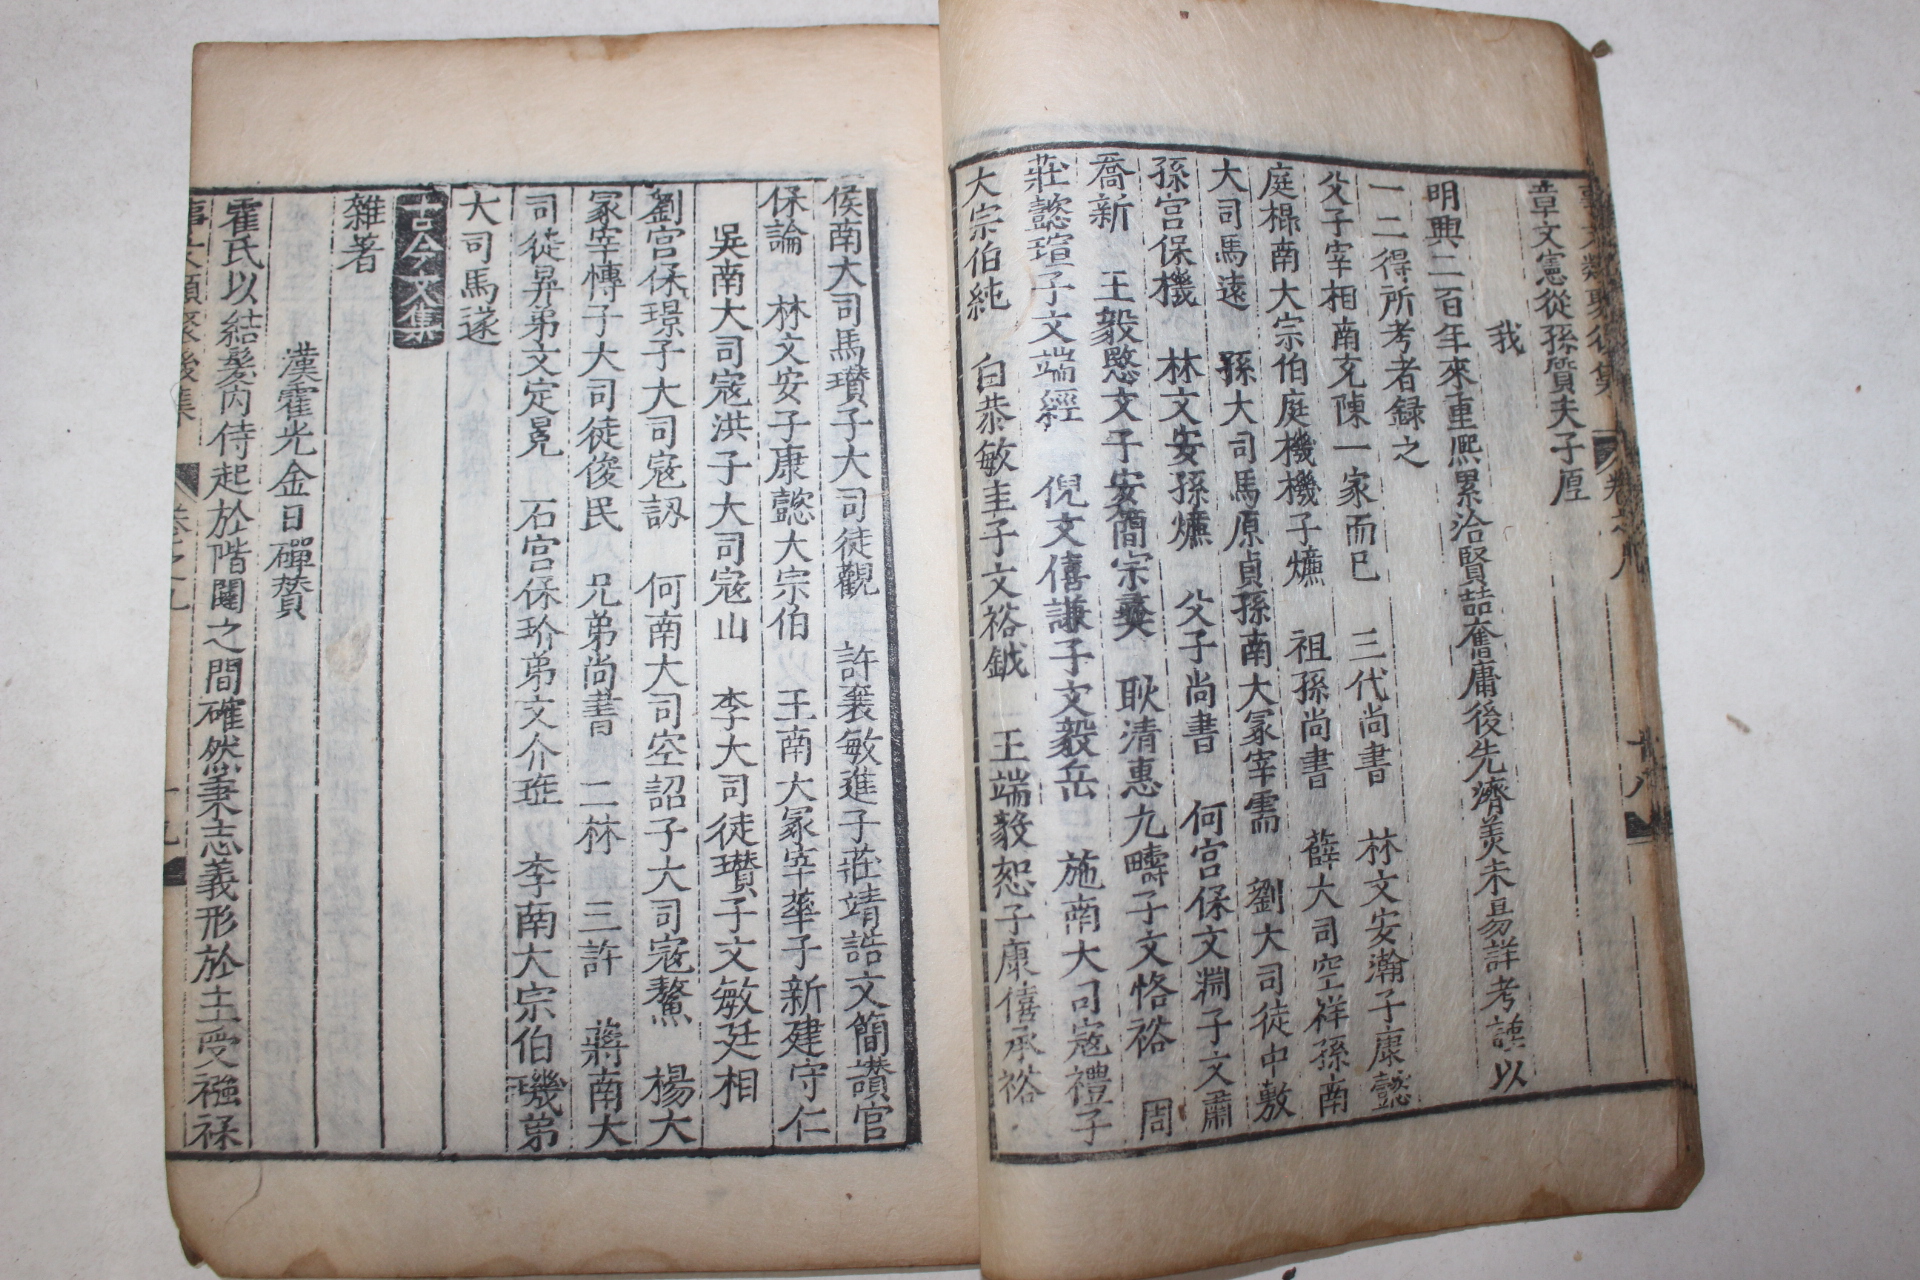 章文憲從孫質夫子厚
我
明興二百年來重熙累洽賢喆奮庸後先濟美未易詳考謹以
一二得所考者録之
父子宰相南充陳一家而已　三代尚書　林文安瀚子康懿
庭㭿南大宗伯庭機機子爌　祖孫尚書　薛大司空祥孫南
大司馬遠　孫大司馬原貞孫南大冢宰需　劉大司徒中敷
孫宮保機　林文安孫爌　父子尚書　何宮保文淵子文肅
喬新　王毅愍文子安簡宗彝　耿清惠九疇子文恪裕　周
莊懿瑄子文端經　倪文僖謙子文毅岳　施南大司寇禮子
大宗伯純　白恭敏圭子文裕鉞　王端毅恕子康僖承裕
侯南大司馬瓚子大司徒觀　許襄敏進子莊靖誥文簡讚宮
保論　林文安子康懿大宗伯　王南大冢宰華子新建守仁
吳南大司寇洪子大司寇山　李大司徒瓚子文敏廷相
劉宮保璟子大司寇訒　何南大司空詔子大司寇鰲　楊大
冢宰慱子大司徒俊民　兄弟尚書　二林　三許　蔣南大
司徒昇弟文定冕　石宮保玠弟文介珤　李南大宗伯璣弟
大司馬遂
古今文集
雜著
漢霍光金日磾贊
霍氏以結髮內侍起於階闥之間確然秉志義形於主受襁褓
事文類聚後集　卷之九　十九